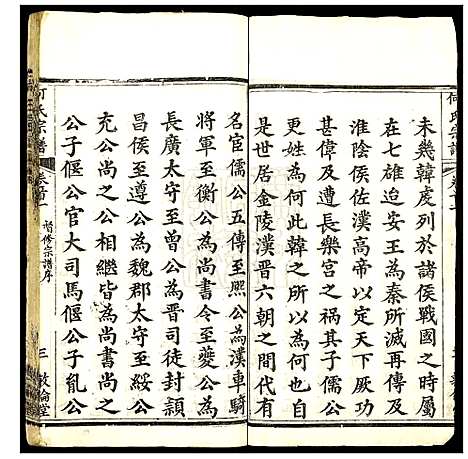 未幾韓虔列於諸侯戰國之時屬
在七雄迨安王為秦所滅再傳及
淮陰侯佐漢高帝以定天下厥功
甚偉及遭長樂宮之禍其子儒公
更姓為何此韓之所以為何也於
是世居金陵漢晉六朝之間代有
名宦儒公五傳至熙公為漢車騎
將軍至衡公為尚書令至夔公為
長廣太守至曾公為晉司徒封潁
昌侯至遵公為魏郡太守至綏公
充公尚之公相繼皆為尚書尚之
公子偃公官大司馬偃公子亂公
何氏宗譜
卷首
督修宗譜序
三
敦倫堂
何氏宗譜